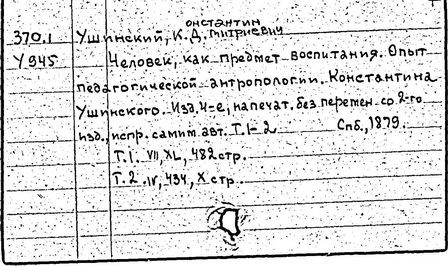 онстантин
370.1 Ушинский, К. Д. митриевич
У945 Человек, как предмет воспитания. Опыт
педагогической антропологии. Константина
Ушинского. Изд. 4=е, напечат. без перемен. со 2-го
изд., испр. самим авт. Т. 1-2 Спб., 1879.
Т. 1. VII, XL, 482 стр.
Т. 2. IV, 434, X стр.